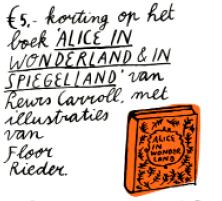 €5,- korting op het
boek 'ALICE IN
WONDERLAND & IN
SPIEGELLAND' van
Lewis Carroll, met
illustraties
van
Floor
Rieder.
ALICE
IN
WONDER
LAND